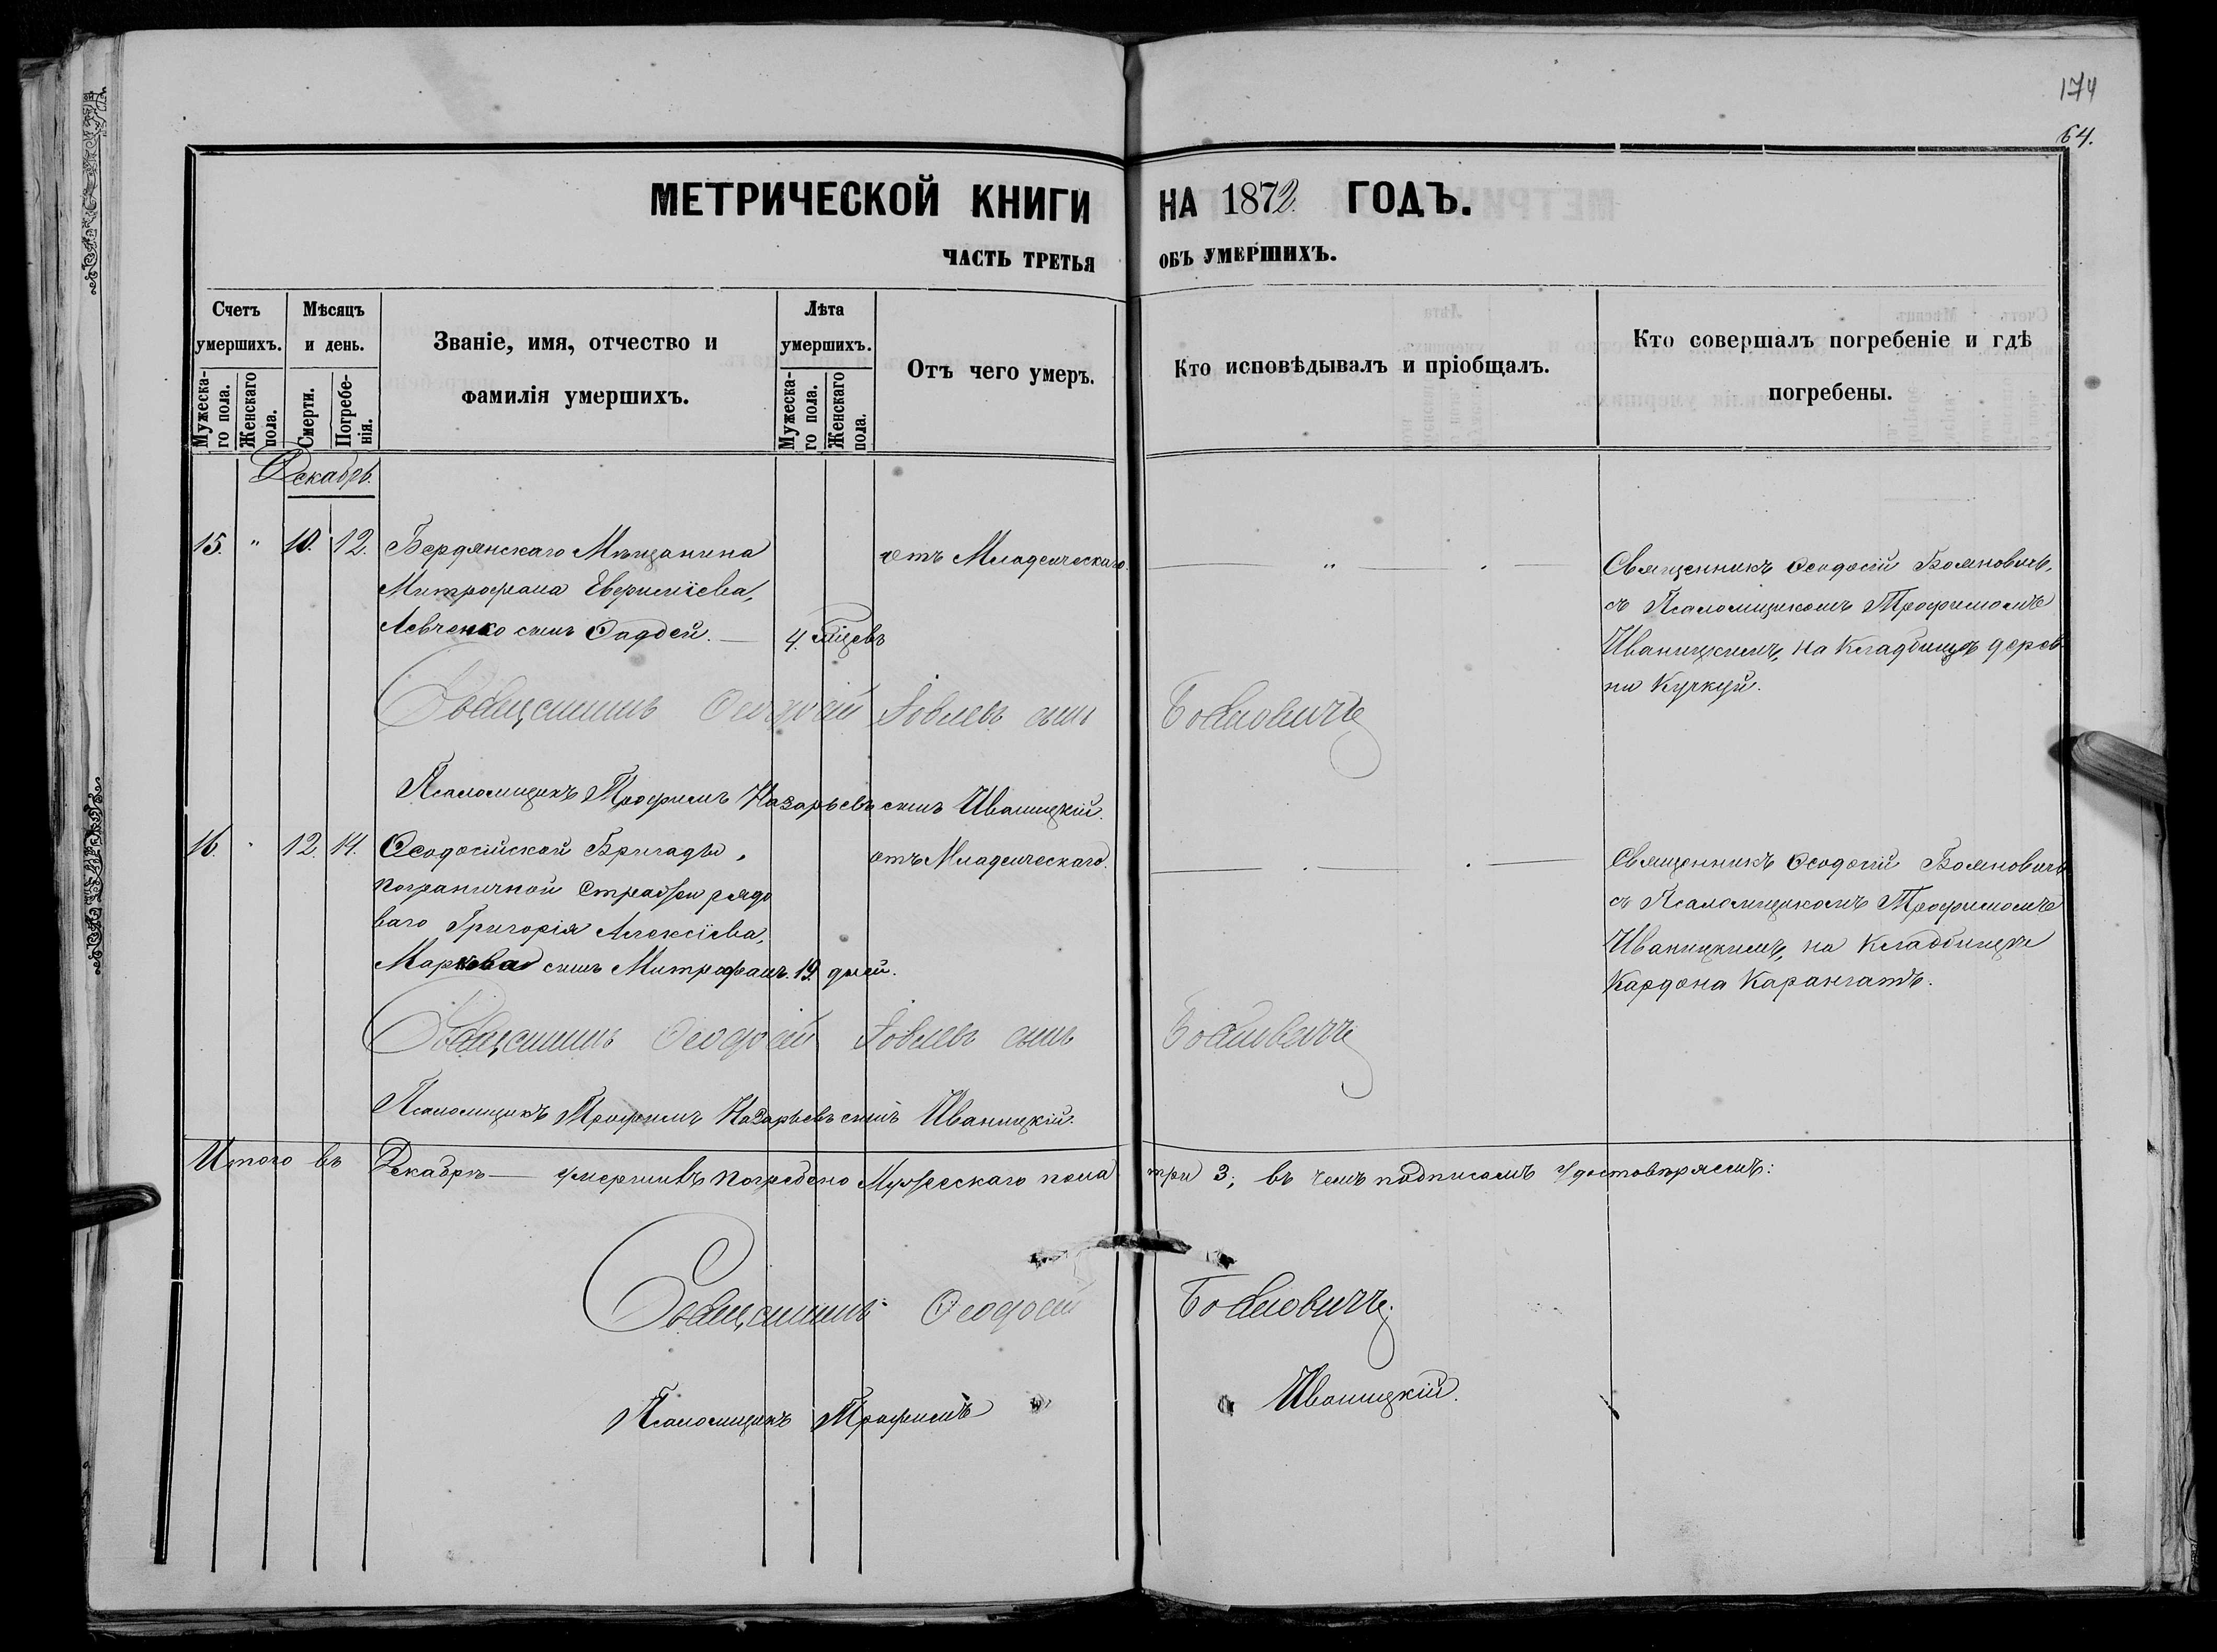 174
64.
МЕТРИЧЕСКОЙ КНИГИ НА 1872 ГОДЪ.
ЧАСТЬ ТРЕТЬЯ ОБЪ УМЕРШИХЪ.
Счетъ умершихъ.
Мужеска-го пола.
Женскаго пола.
Мѣсяцъ и день.
Смерти.
Погребе-нія.
Званіе, имя, отчество и
фамилія умершихъ.
Лѣта умершихъ.
Мужеска-го пола.
Женскаго пола.
Отъ чего умеръ.
Кто исповѣдывалъ и пріобщалъ.
Кто совершалъ погребеніе и гдѣ
погребены.
Декабрь.
15. " 10. 12. Бердянскаго Мѣщанина
Митрофана Евфиміева,
Левченко сынъ Фаддей. — 4.
отъ Младенческаго.
Священникъ Ѳеодосій Бояновичъ,
съ Псаломщикомъ Трофимомъ
Иваницкимъ, на Кладбищѣ дерев-
ни Куркуй.
Священникъ Ѳеодосій Іовлевъ сынъ Бояновичъ
Псаломщикъ Трофимъ Назарьевъ сынъ Иваницкій.
16. " 12. 14. Ѳеодосійской Бригады,
пограничной Стражи рядо
ваго Григорія Алексіева,
Маркова сынъ Митрофанъ. 19. дней.
отъ Младенческаго.
Священникъ Ѳеодосій Бояновичъ
съ Псаломщикомъ Трофимомъ
Иваницкимъ, на Кладбищѣ
Кардона Карангатъ.
Священникъ Ѳеодосій Іовлевъ сынъ Бояновичъ
Псаломщикъ Трофимъ Назарьевъ сынъ Иваницкій.
Итого въ Декабрѣ — умершихъ погребено Мужескаго пола три 3; въ чемъ подписомъ удостовѣряемъ:
Священникъ Ѳеодосій Бояновичъ.
Псаломщикъ Трофимъ Иваницкій.